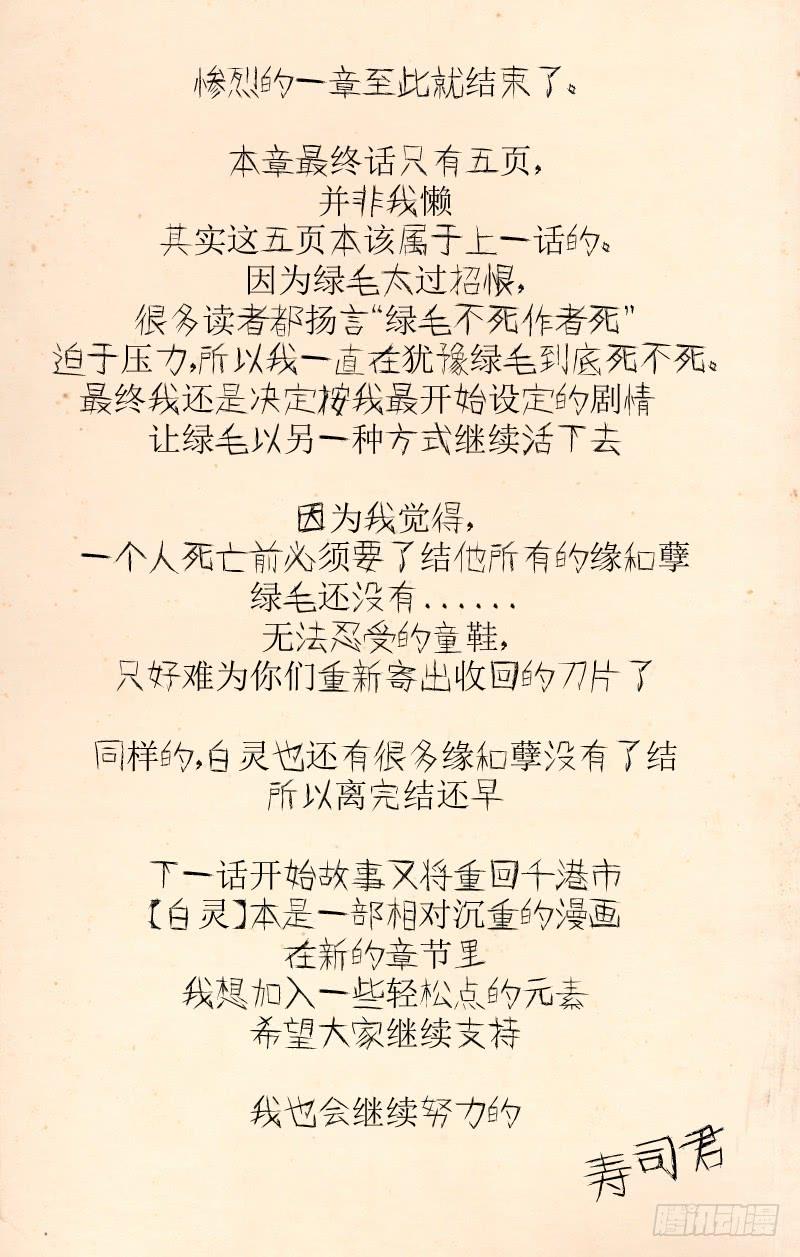 惨烈的一章至此就结束了。
本章最终话只有五页，
并非我懒
其实这五页本该属于上一话的。
因为绿毛太过招恨，
很多读者都扬言“绿毛不死作者死”
迫于压力，所以我一直在犹豫绿毛到底死不死。
最终我还是决定按我最开始设定的剧情
让绿毛以另一种方式继续活下去
因为我觉得，
一个人死亡前必须要了结他所有的缘和孽
绿毛还没有......
无法忍受的童鞋，
只好难为你们重新寄出收回的刀片了
同样的，白灵也还有很多缘和孽没有了结
所以离完结还早
下一话开始故事又将重回千港市
【白灵】本是一部相对沉重的漫画
在新的章节里
我想加入一些轻松点的元素
希望大家继续支持
我也会继续努力的
寿司君
腾讯动漫